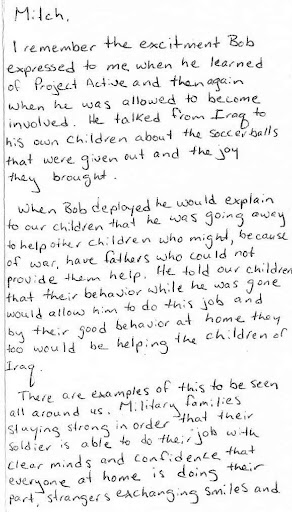 Mitch,
I remember the excitment Bob
expressed to me when he learned
of Project Active and then again
when he was allowed to become
involved. He talked from Iraq to
his own children about the soccerballs
that were given out and the joy
they brought.
When Bob deployed he would explain
to our children that he was going away
to help other children who might, because
of war, have fathers who could not
provide them help. He told our children
that their behavior while he was gone
would allow him to do this job and
by their good behavior at home they
too would be helping the children of
Iraq.
There are examples of this to be seen
all around us. Military families
staying strong in order that their
soldier is able to do their job with
clear minds and confidence that
everyone at home is doing their
part, strangers exchanging smiles and